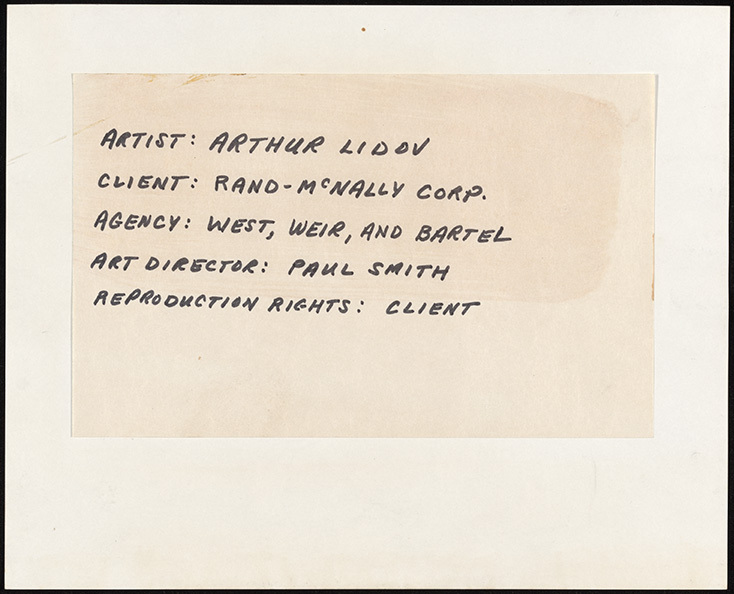 ARTIST: ARTHUR LIDOV
CLIENT: RAND-McNALLY CORP.
AGENCY: WEST, WEIR, AND BARTEL
ART DIRECTOR: PAUL SMITH
REPRODUCTION RIGHTS: CLIENT